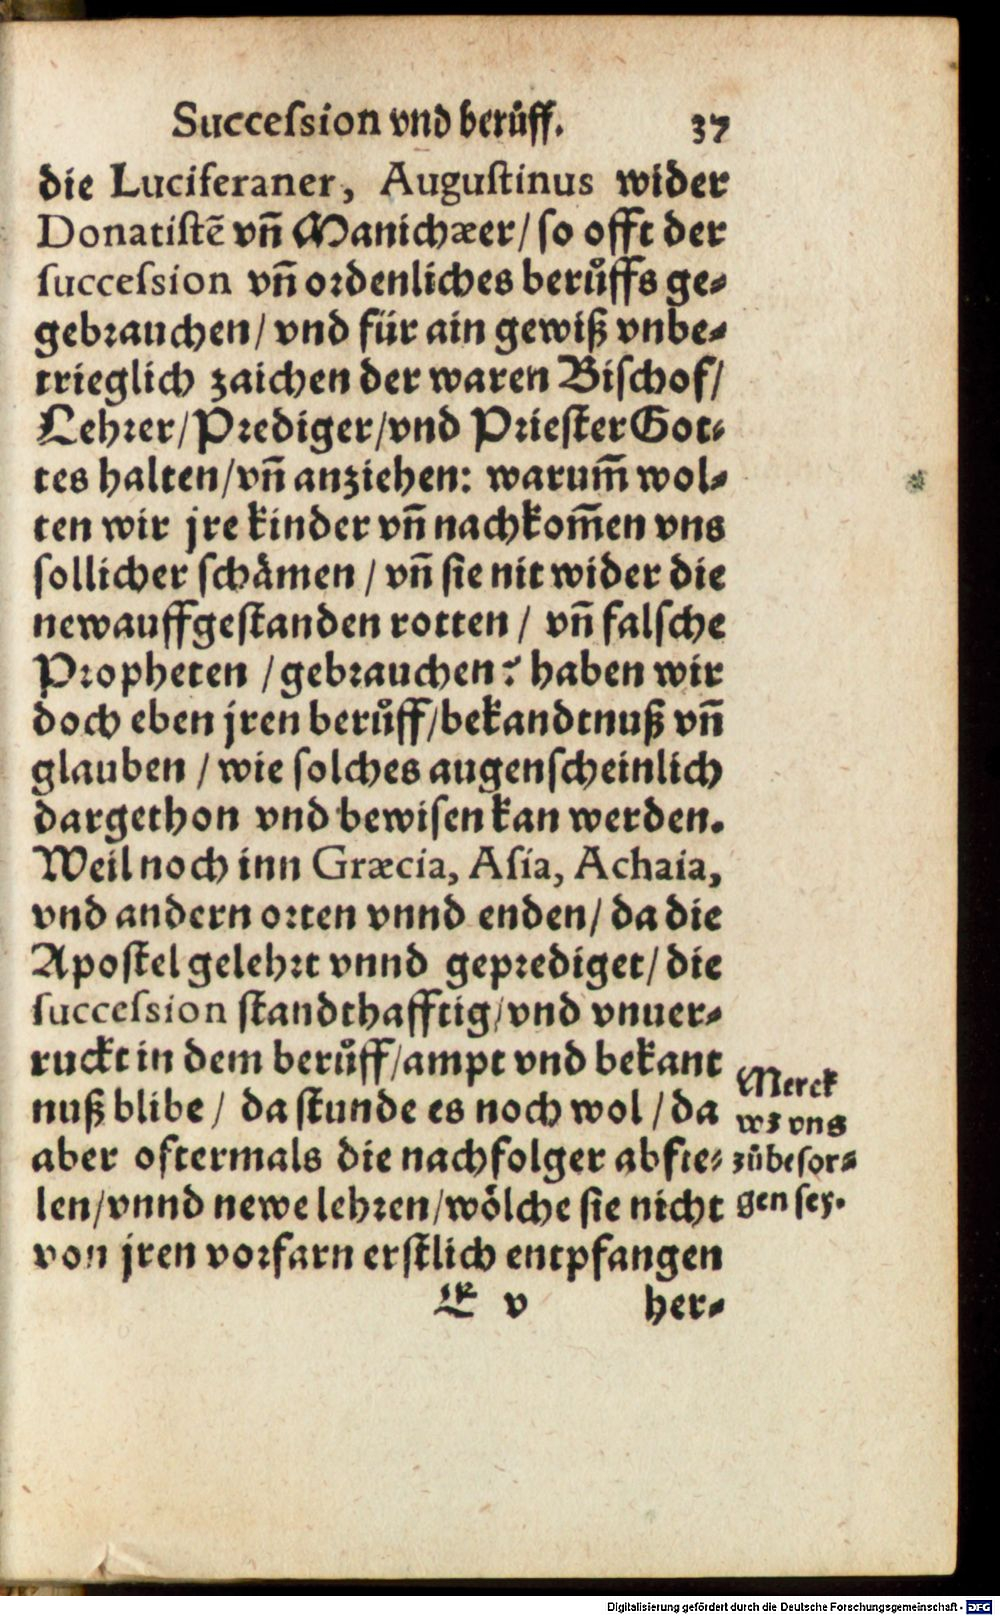 Succeſsion vnd berůff. 37
die Luciferaner, Auguſtinus wider
Donatiſtẽ vñ Manichæer/ ſo offt der
ſucceſsion vñ ordenliches berůffs ge-
gebrauchen/ vnd für ain gewiß vnbe-
trieglich zaichen der waren Biſchof/
Lehrer/ Prediger/ vnd Prieſter Got-
tes halten/ vñ anziehen: warum̃ wol-
ten wir jre kinder vñ nachkom̃en vns
ſollicher ſchämen / vñ ſie nit wider die
newauffgeſtanden rotten / vñ falſche
Propheten / gebrauchen? haben wir
doch eben jren berůff/ bekandtnuß vñ
glauben / wie ſolches augenſcheinlich
dargethon vnd bewiſen kan werden.
Weil noch inn Græcia, Aſia, Achaia,
vnd andern orten vnnd enden/ da die
Apoſtel gelehrt vnnd geprediget/ die
ſucceſsion ſtandthafftig/ vnd vnuer-
ruckt in dem berůff/ ampt vnd bekant
nuß blibe / da ſtunde es noch wol / da
aber oftermals die nachfolger abfie-
len/ vnnd newe lehren/ wölche ſie nicht
von jren vorfarn erſtlich entpfangen
Merck
wz vns
zůbeſor-
gen ſey.
E v her-
Digitalisierung gefördert durch die Deutsche Forschungsgemeinschaft - DFG